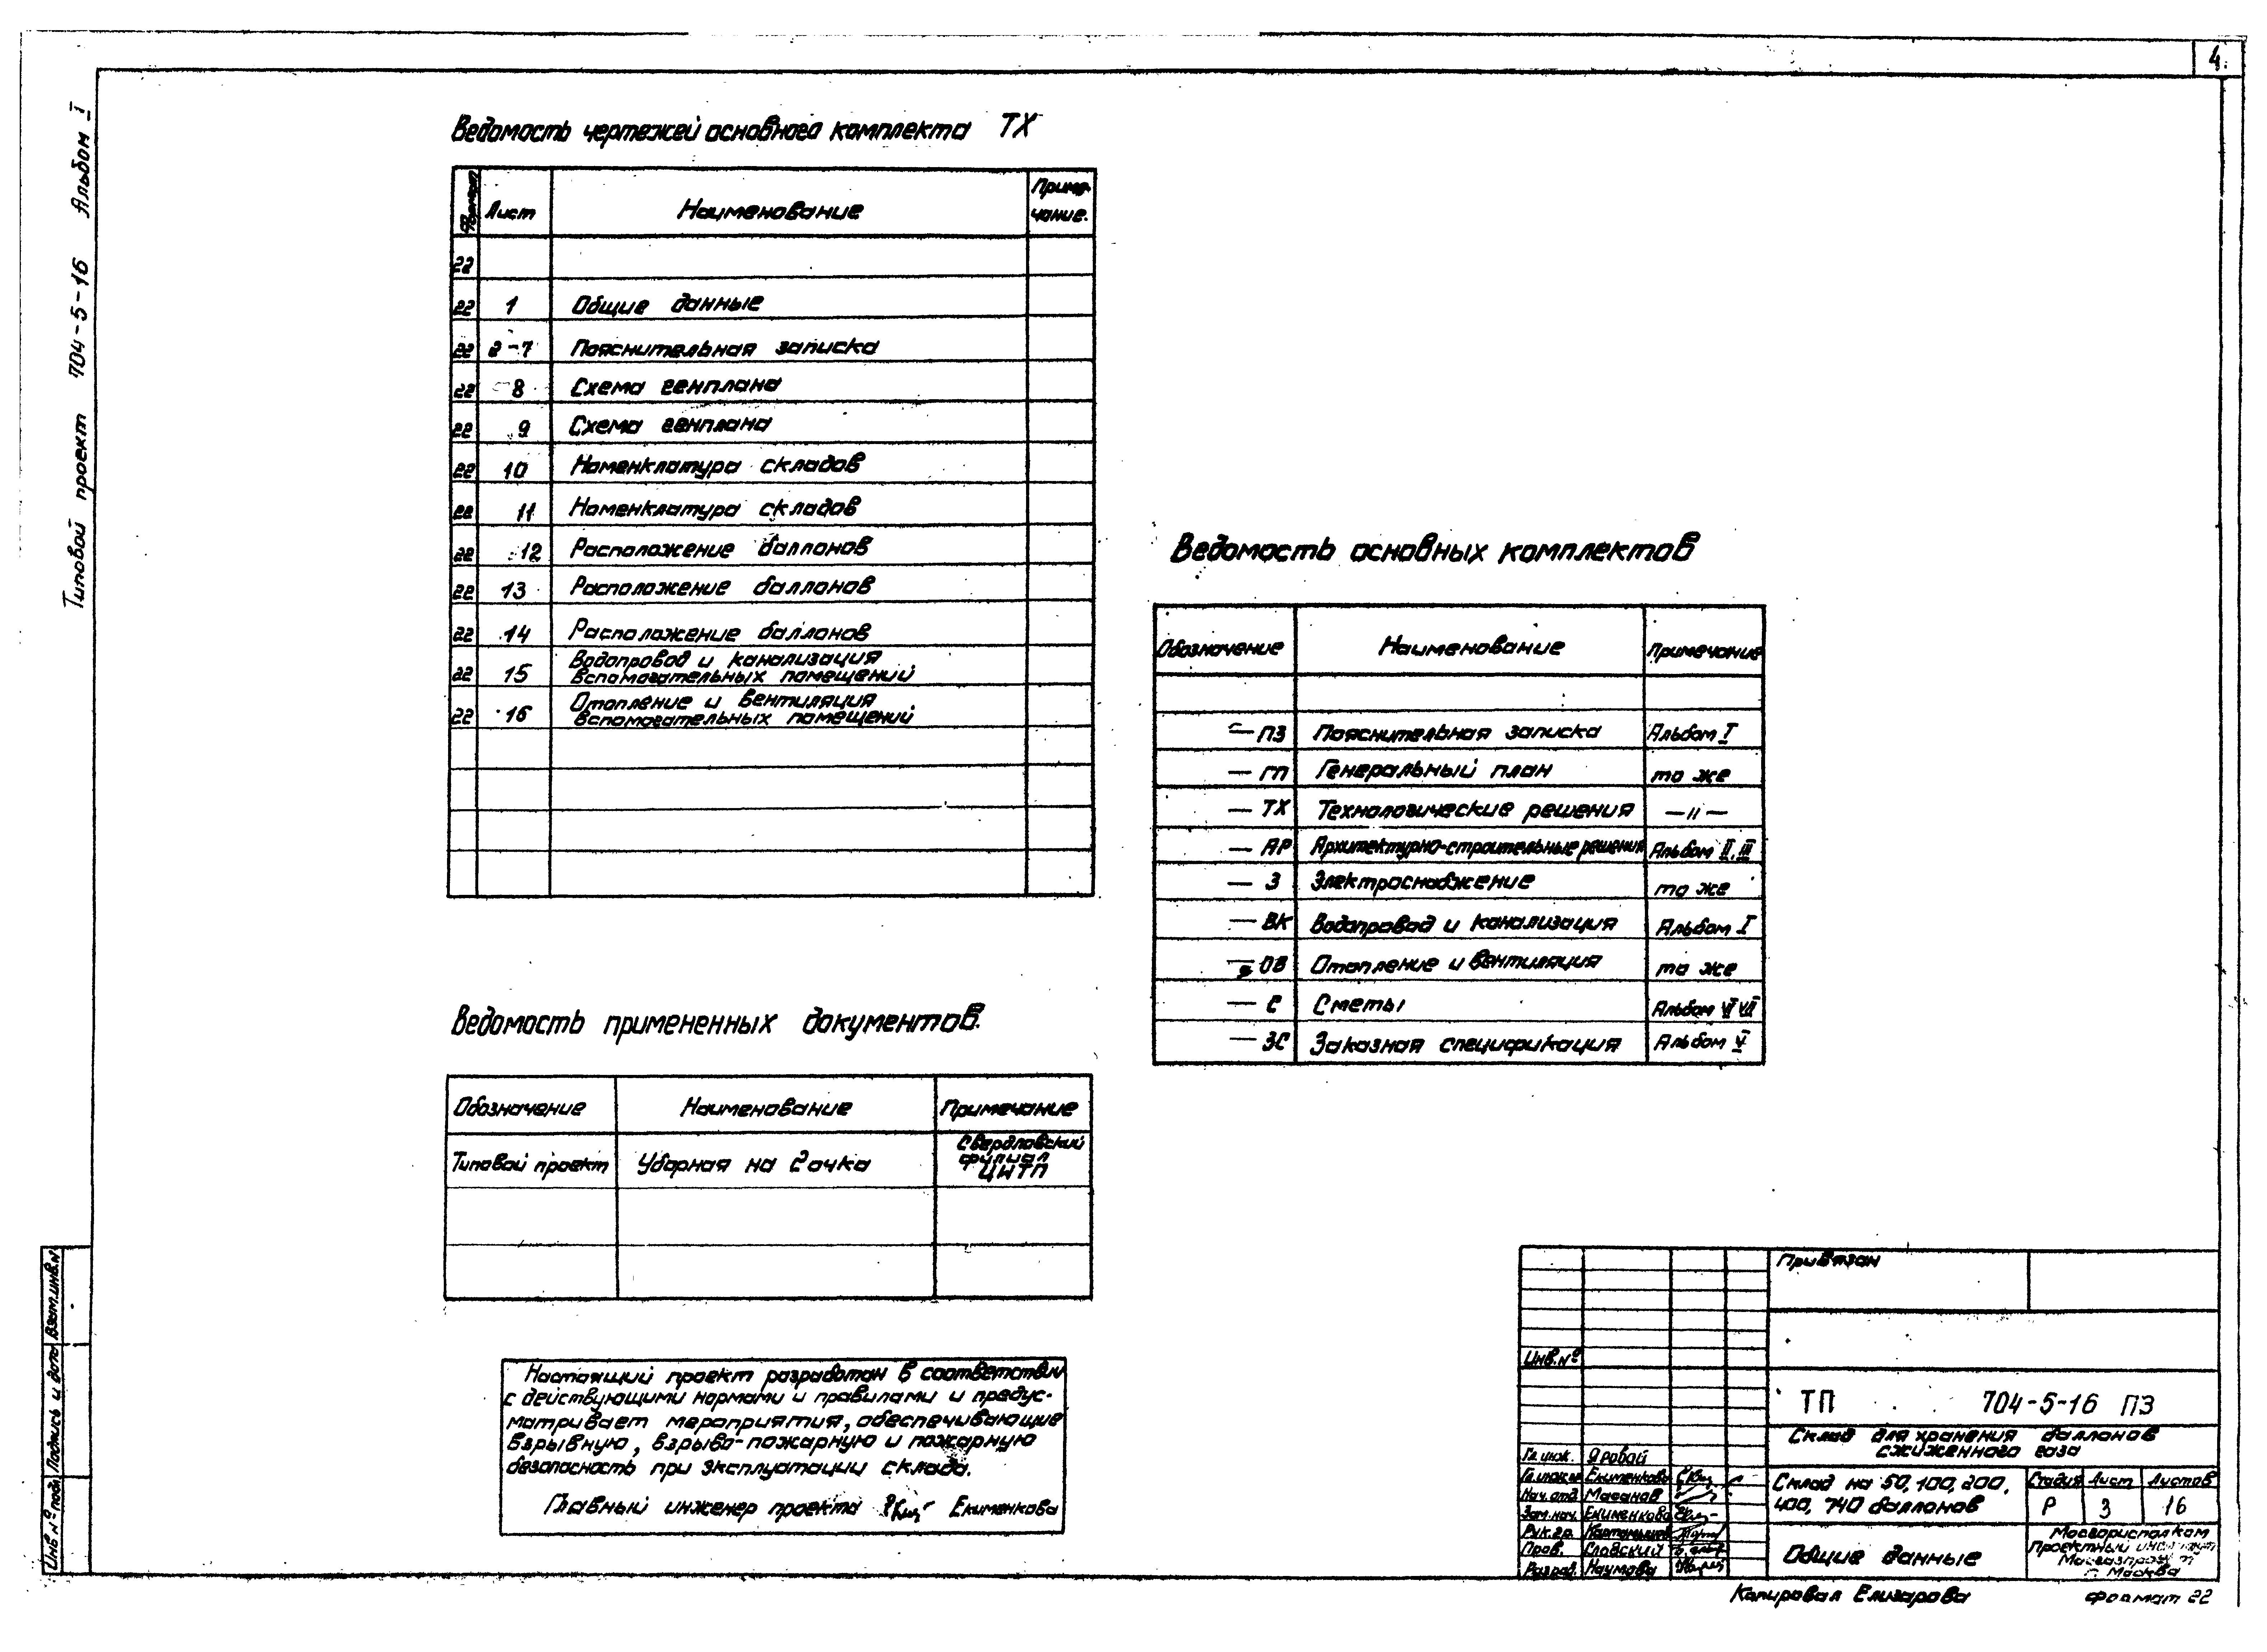 4
Типовой проект 704-5-16 Альбом I
Ведомость чертежей основного комплекта ТХ
Формат Лист Наименование Приме-
чание.
22
22 1 Общие данные
22 2-7 Пояснительная записка
22 8 Схема генплана
22 9 Схема генплана
22 10 Номенклатура складов
22 11 Номенклатура складов
22 12 Расположение баллонов
22 13 Расположение баллонов
22 14 Расположение баллонов
22 15 Водопровод и канализация
вспомогательных помещений
22 16 Отопление и вентиляция
вспомогательных помещений
Ведомость основных комплектов
Обозначение Наименование Примечание
— ПЗ Пояснительная записка Альбом I
— ГП Генеральный план то же
— ТХ Технологические решения —"—
— АР Архитектурно-строительные решения Альбом II, III
— Э Электроснабжение то же
— ВК Водопровод и канализация Альбом I
— ОВ Отопление и вентиляция то же
— С Сметы Альбом VI VII
— ЗС Заказная спецификация Альбом V
Ведомость примененных документов.
Обозначение Наименование Примечание
Типовой проект Уборная на 2 очка Свердловский
филиал
ЦИТП
Настоящий проект разработан в соответствии
с действующими нормами и правилами и предус-
матривает мероприятия, обеспечивающие
взрывную, взрыво-пожарную и пожарную
безопасность при эксплуатации склада.
Главный инженер проекта Екименкова
Инв № подл Подпись и дата Взам.инв.н
Привязан
Инв.№
ТП 704-5-16 ПЗ
Склад для хранения баллонов
сжиженного газа
Гл. инж. Яровой
Гл.инж.пр Екименкова
Нач.отд Масанов
Зам.нач. Екименкова
Рук.гр.
Пров. Славский
Разраб. Наумова
Склад на 50, 100, 200,
400, 740 баллонов
Стадия Лист Листов
Р 3 16
Общие данные
Мосгорисполком
Проектный институт
Мосгазпроект
г. Москва
Копировал Елизарова Формат 22